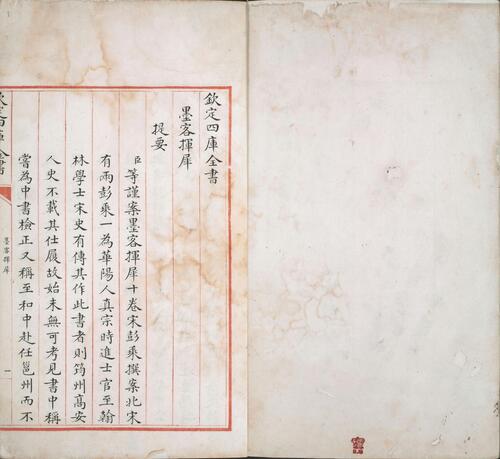 欽定四庫全書
墨客揮犀
提要
臣等謹案墨客揮犀十卷宋彭乘撰案北宋
有兩彭乘一為華陽人真宗時進士官至翰
林學士宋史有傳其作此書者則筠州高安
人史不載其仕履故始末無可考見書中稱
嘗為中書檢正又稱至和中赴任邕州而不
欽定四庫全書
墨客揮犀
一